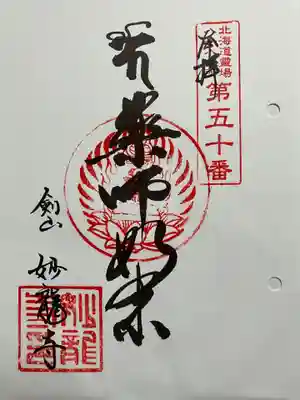 北海道霊場
第五十番
奉拝
薬師如来
剣山
妙龍寺